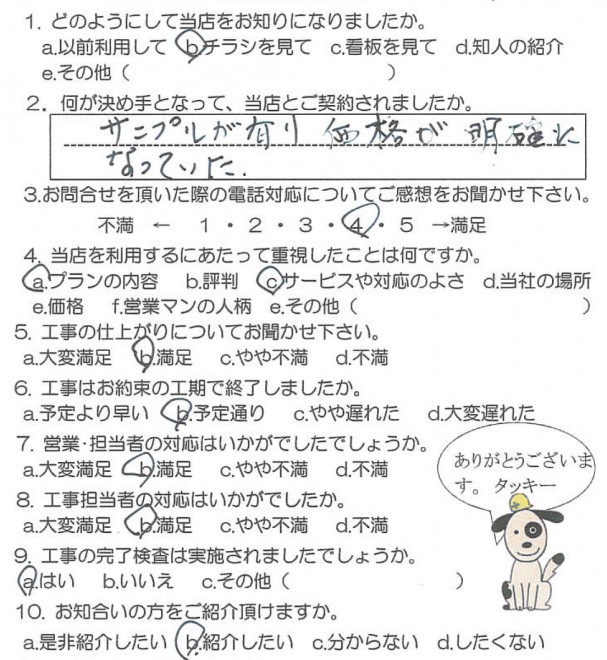 1. どのようにして当店をお知りになりましたか。
a.以前利用して b.チラシを見て c.看板を見て d.知人の紹介
e.その他（ ）
2. 何が決め手となって、当店とご契約されましたか。
サンプルが有り 価格が 明確に
なっていた。
3.お問合せを頂いた際の電話対応についてご感想をお聞かせ下さい。
不満 ← 1・2・3・4・5 →満足
4. 当店を利用するにあたって重視したことは何ですか。
a.プランの内容 b.評判 c.サービスや対応のよさ d.当社の場所
e.価格 f.営業マンの人柄 e.その他（ ）
5. 工事の仕上がりについてお聞かせ下さい。
a.大変満足 b.満足 c.やや不満 d.不満
6. 工事はお約束の工期で終了しましたか。
a.予定より早い b.予定通り c.やや遅れた d.大変遅れた
7. 営業・担当者の対応はいかがでしたでしょうか。
a.大変満足 b.満足 c.やや不満 d.不満
8. 工事担当者の対応はいかがでしたか。
a.大変満足 b.満足 c.やや不満 d.不満
ありがとうございま
す。 タッキー
9. 工事の完了検査は実施されましたでしょうか。
a.はい b.いいえ c.その他（ ）
10. お知合いの方をご紹介頂けますか。
a.是非紹介したい b.紹介したい c.分からない d.したくない